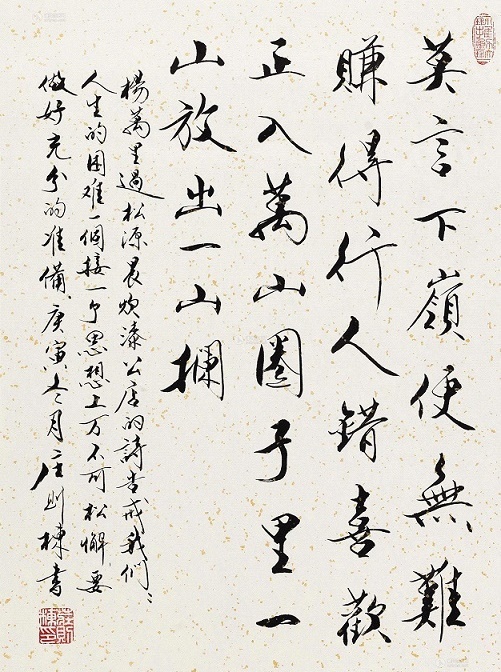 莫言下嶺便無難
賺得行人錯喜歡
正入萬山圈子里一
山放出一山攔
楊萬里過松源晨炊漆公店的詩告戒我們〻
人生的困难一個接一个思想上万不可松懈要
做好充分的准備庚寅冬月庄则棟書
莊则棟印